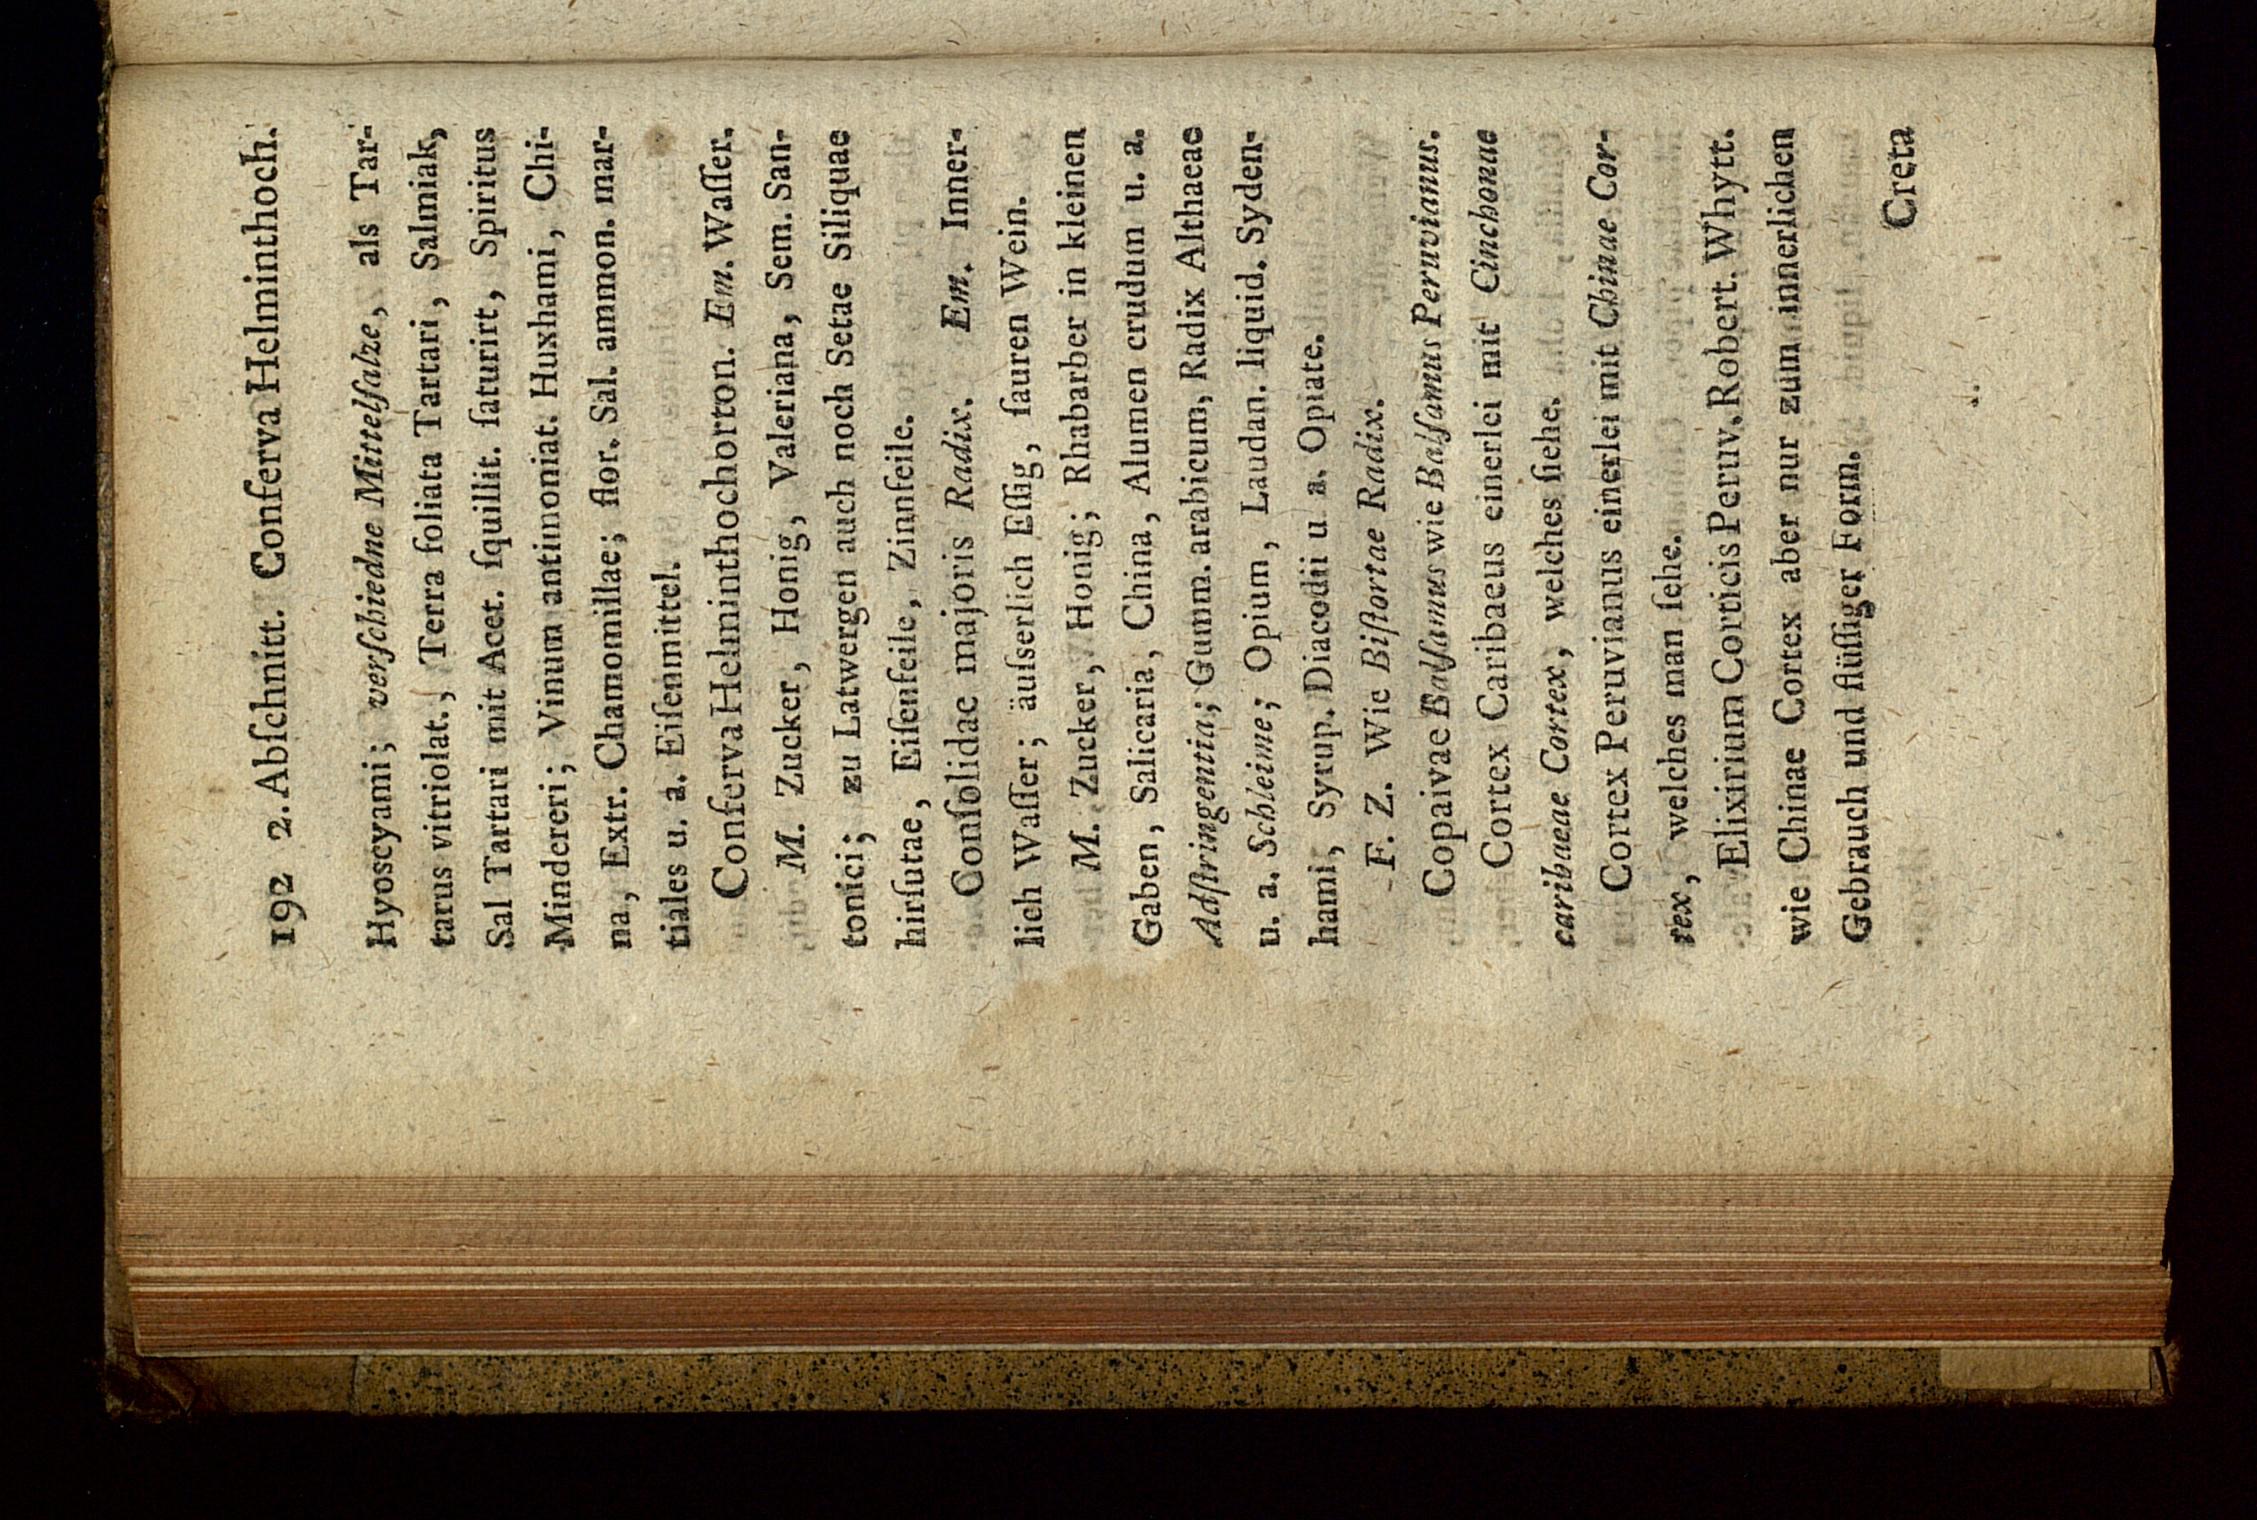 192 2. Abſchnitt. Conferva Helminthoch.
Hyoscyami; verſchiedne Mittelſalze, als Tar-
tarus vitriolat., Terra foliata Tartari, Salmiak,
Sal Tartari mit Acet. ſquillit. ſaturirt, Spiritus
Mindereri; Vinum antimoniat. Huxhami, Chi-
na, Extr. Chamomillae; flor. Sal. ammon. mar-
tiales u. a. Eiſenmittel.
Conferva Helminthochorton. Em. Waſſer.
M. Zucker, Honig, Valeriana, Sem. San-
tonici; zu Latwergen auch noch Setae Siliquae
hirſutae, Eiſenfeile, Zinnfeile.
Conſolidae majoris Radix. Em. Inner-
lich Waſſer; äuſserlich Eſſig, ſauren Wein.
M. Zucker, Honig; Rhabarber in kleinen
Gaben, Salicaria, China, Alumen crudum u. a.
Adſtringentia; Gumm. arabicum, Radix Althaeae
u. a. Schleime; Opium, Laudan. liquid. Syden-
hami, Syrup. Diacodii u. a. Opiate.
F. Z. Wie Biſtortae Radix.
Copaivae Balſamus wie Balſamus Peruvianus.
Cortex Caribaeus einerlei mit Cinchonae
caribaeae Cortex, welches ſiehe.
Cortex Peruvianus einerlei mit Chinae Cor-
tex, welches man ſehe.
Elixirium Corticis Peruv. Robert. Whytt.
wie Chinae Cortex aber nur zum innerlichen
Gebrauch und flüſſiger Form.
Creta